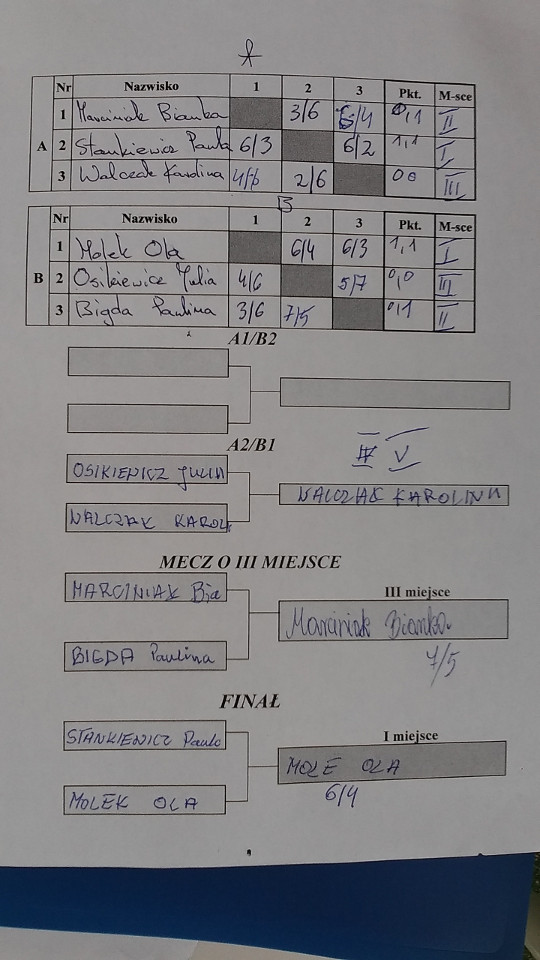 A
Nr Nazwisko 1 2 3 Pkt. M-sce
1 Marciniak Bianka 3/6 6/4 0,1 II
A 2 Stankiewicz Paula 6/3 6/2 1,1 I
3 Walczak Karolina 4/6 2/6 0 0 III
B
Nr Nazwisko 1 2 3 Pkt. M-sce
1 Molek Ola 6/4 6/3 1,1 I
B 2 Osikiewicz Julia 4/6 5/7 0,0 III
3 Bigda Paulina 3/6 7/5 0,1 II
A1/B2
A2/B1
V
OSIKIEWICZ JULIA
WALCZAK KAROLINA
WALCZAK KAROLI
MECZ O III MIEJSCE
MARCINIAK Bia
III miejsce
Marciniak Bianka
BIGDA Paulina
7/5
FINAŁ
STANKIEWICZ Paula
I miejsce
MOLE OLA
MOLEK OLA
6/4